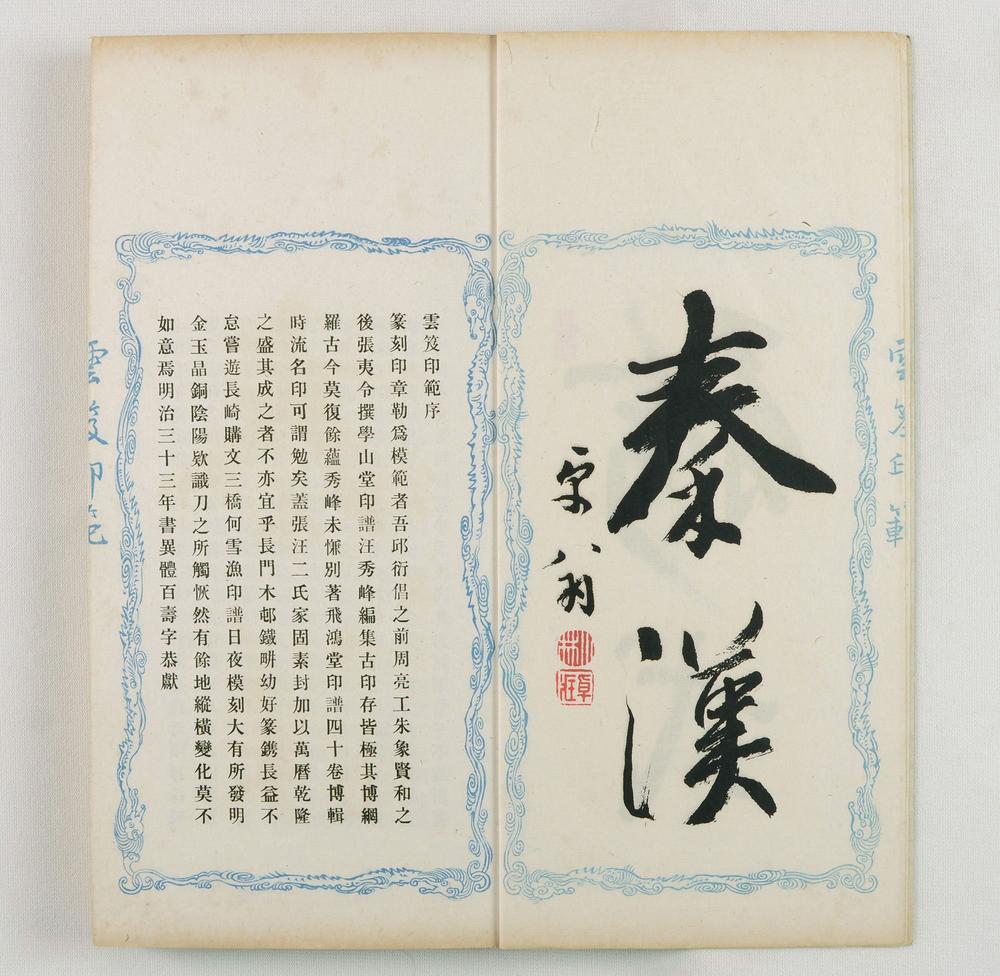 秦漢
八翁
雲笈印範序
篆刻印章勒爲模範者吾邱衍倡之前周亮工朱象賢和之
後張夷令撰學山堂印譜汪秀峰編集古印存皆極其博網
羅古今莫復餘蘊秀峰未慊別著飛鴻堂印譜四十卷博輯
時流名印可謂勉矣蓋張汪二氏家固素封加以萬曆乾隆
之盛其成之者不亦宜乎長門木邨鐵畊幼好篆鎸長益不
怠嘗遊長崎購文三橋何雪漁印譜日夜模刻大有所發明
金玉晶銅陰陽欵識刀之所觸恢然有餘地縱橫變化莫不
如意焉明治三十三年書異體百壽字恭獻
雲笈印範